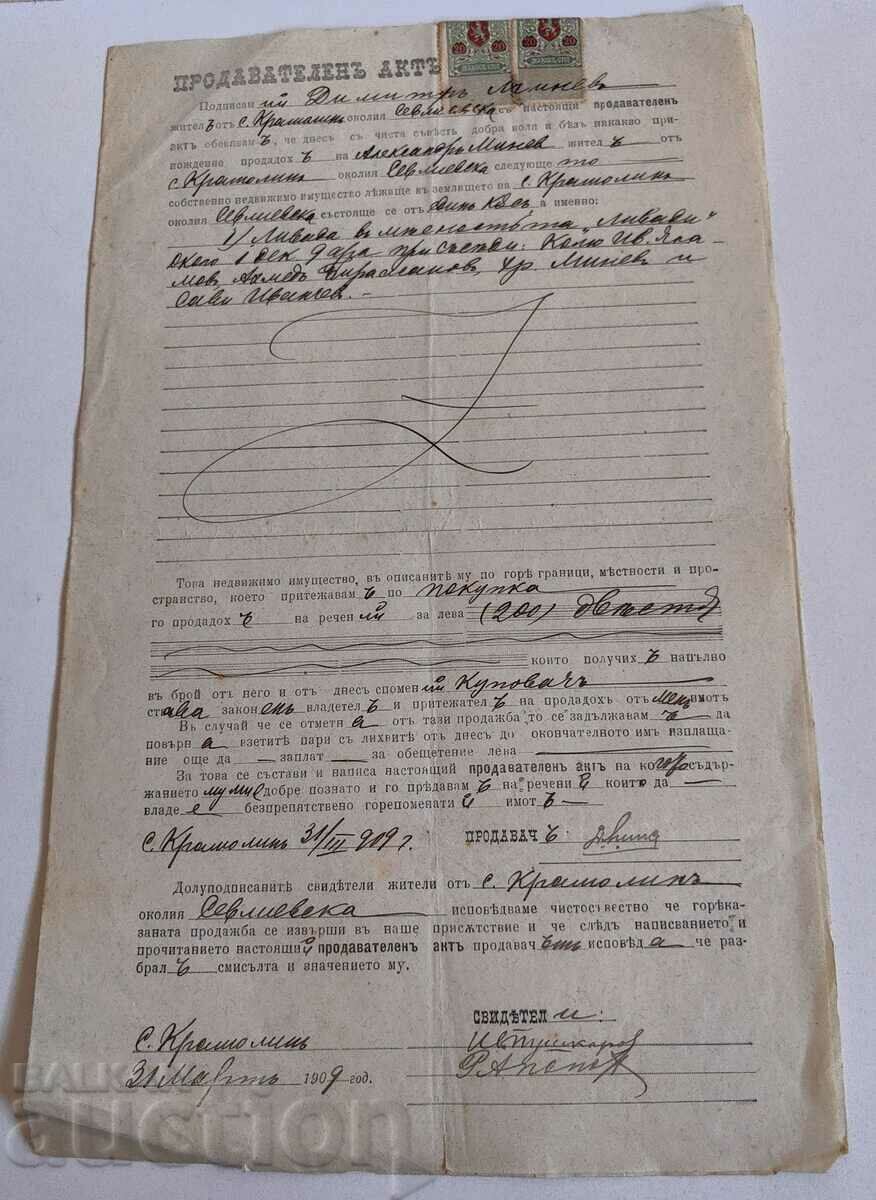 20 20
ПРОДАВАТЕЛЕНЪ АКТЪ
Подписаний Димитръ
жителъ отъ с. Крамолинъ околия Севлиевска съ настоящи продавателен
актъ обевявамъ, че днесъ съ чиста съвѣсть добра воля и безъ никакво при-
нождение продадохъ на Александръ Минев жителъ отъ
с. Крамолинъ околия Севлиевска следующе то
собственно недвижимо имущество лѣжаще въ землището на с. Крамолинъ
околия Севлиевска състояще се отъ а именно:
1) Ливада въ мѣстностьта „Ливади"
около 1 дек 9 ара при съседи: Колю Ив.
Ахмедъ Минев и
Сави Иванчев. –
Това недвижимо имущество, въ описанитѣ му по горѣ граници, мѣстности и про-
странство, което притежавамъ по покупка
го продадохъ на речений за лева (200) двѣстя
които получихъ напълно
въ брой отъ него и отъ днесъ спомений Куповачъ
става законенъ владетелъ и притежателъ на продадохъ отъ менъ имотъ
Въ случай че се отметна отъ тази продажба, то се задължавамъ да
повърна взетитѣ пари съ лихвитѣ отъ днесъ до окончателното имъ изплаща-
ние още да — заплат — за обещетение лева —
За това се състави и написа настоящий продавателен актъ на когото съдър-
жанието му ми е добре познато и го прѣдавамъ на речений които да —
владее безпрепятствено горепоменатий имотъ —
с. Крамолинъ 31/III 909 г. ПРОДАВАЧЪ:
Долуподписанитѣ свидѣтели жители отъ с. Крамолинъ
околия Севлиевска исповѣдваме чистосъвестно че горѣка-
заната продажба се извърши въ наше присѫтствие и че слѣдъ написванието и
прочитанието настоящий продавателен актъ продавачътъ исповѣда че раз-
бралъ смисълта и значението му.
СВИДѢТЕЛИ:
с. Крамолинъ
31 Мартъ 1909 год.
BALKAN
auction